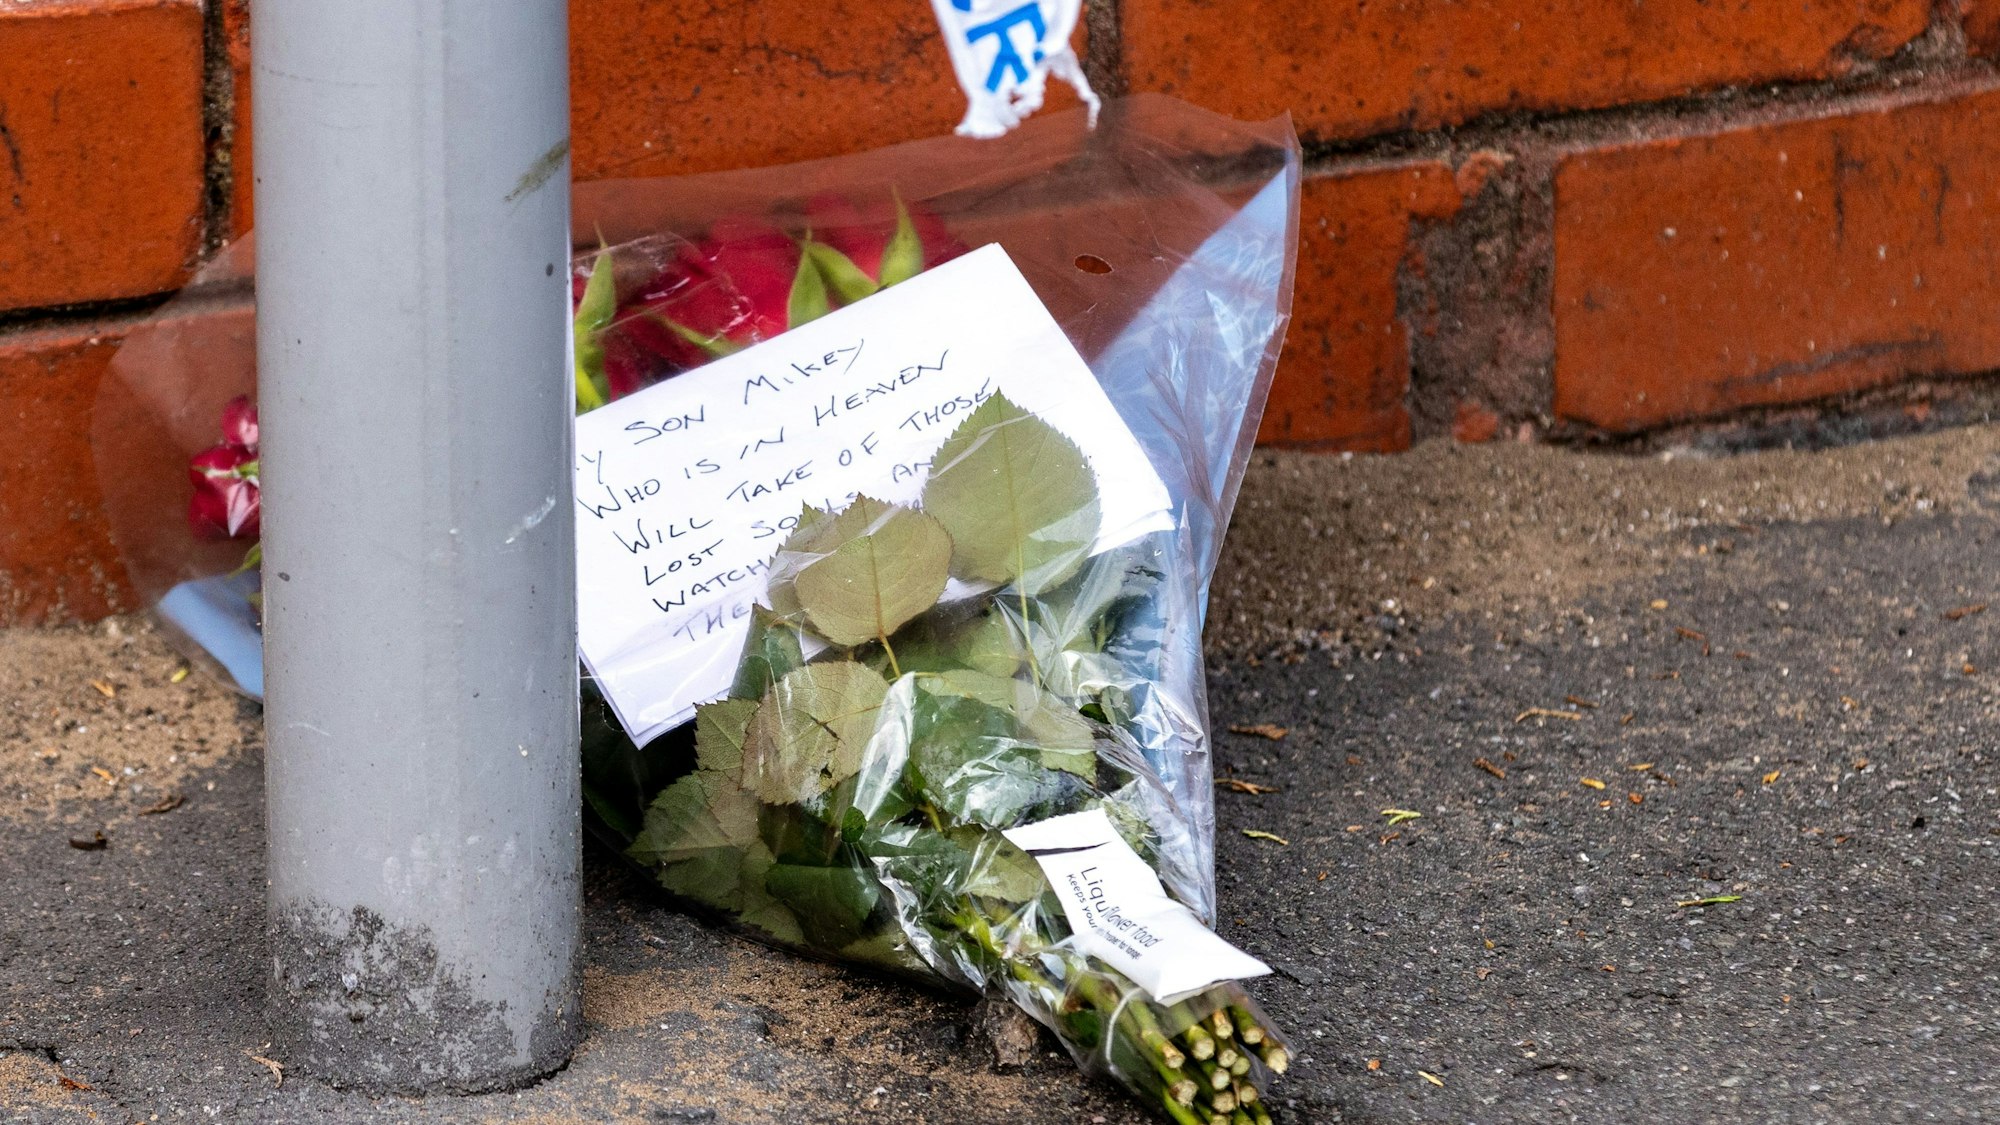 Y SON MIKEY
WHO IS IN HEAVEN
WILL TAKE OF THOSE
LOST SOULS AN
WATCH
THE
Liqu flower food
Keeps your